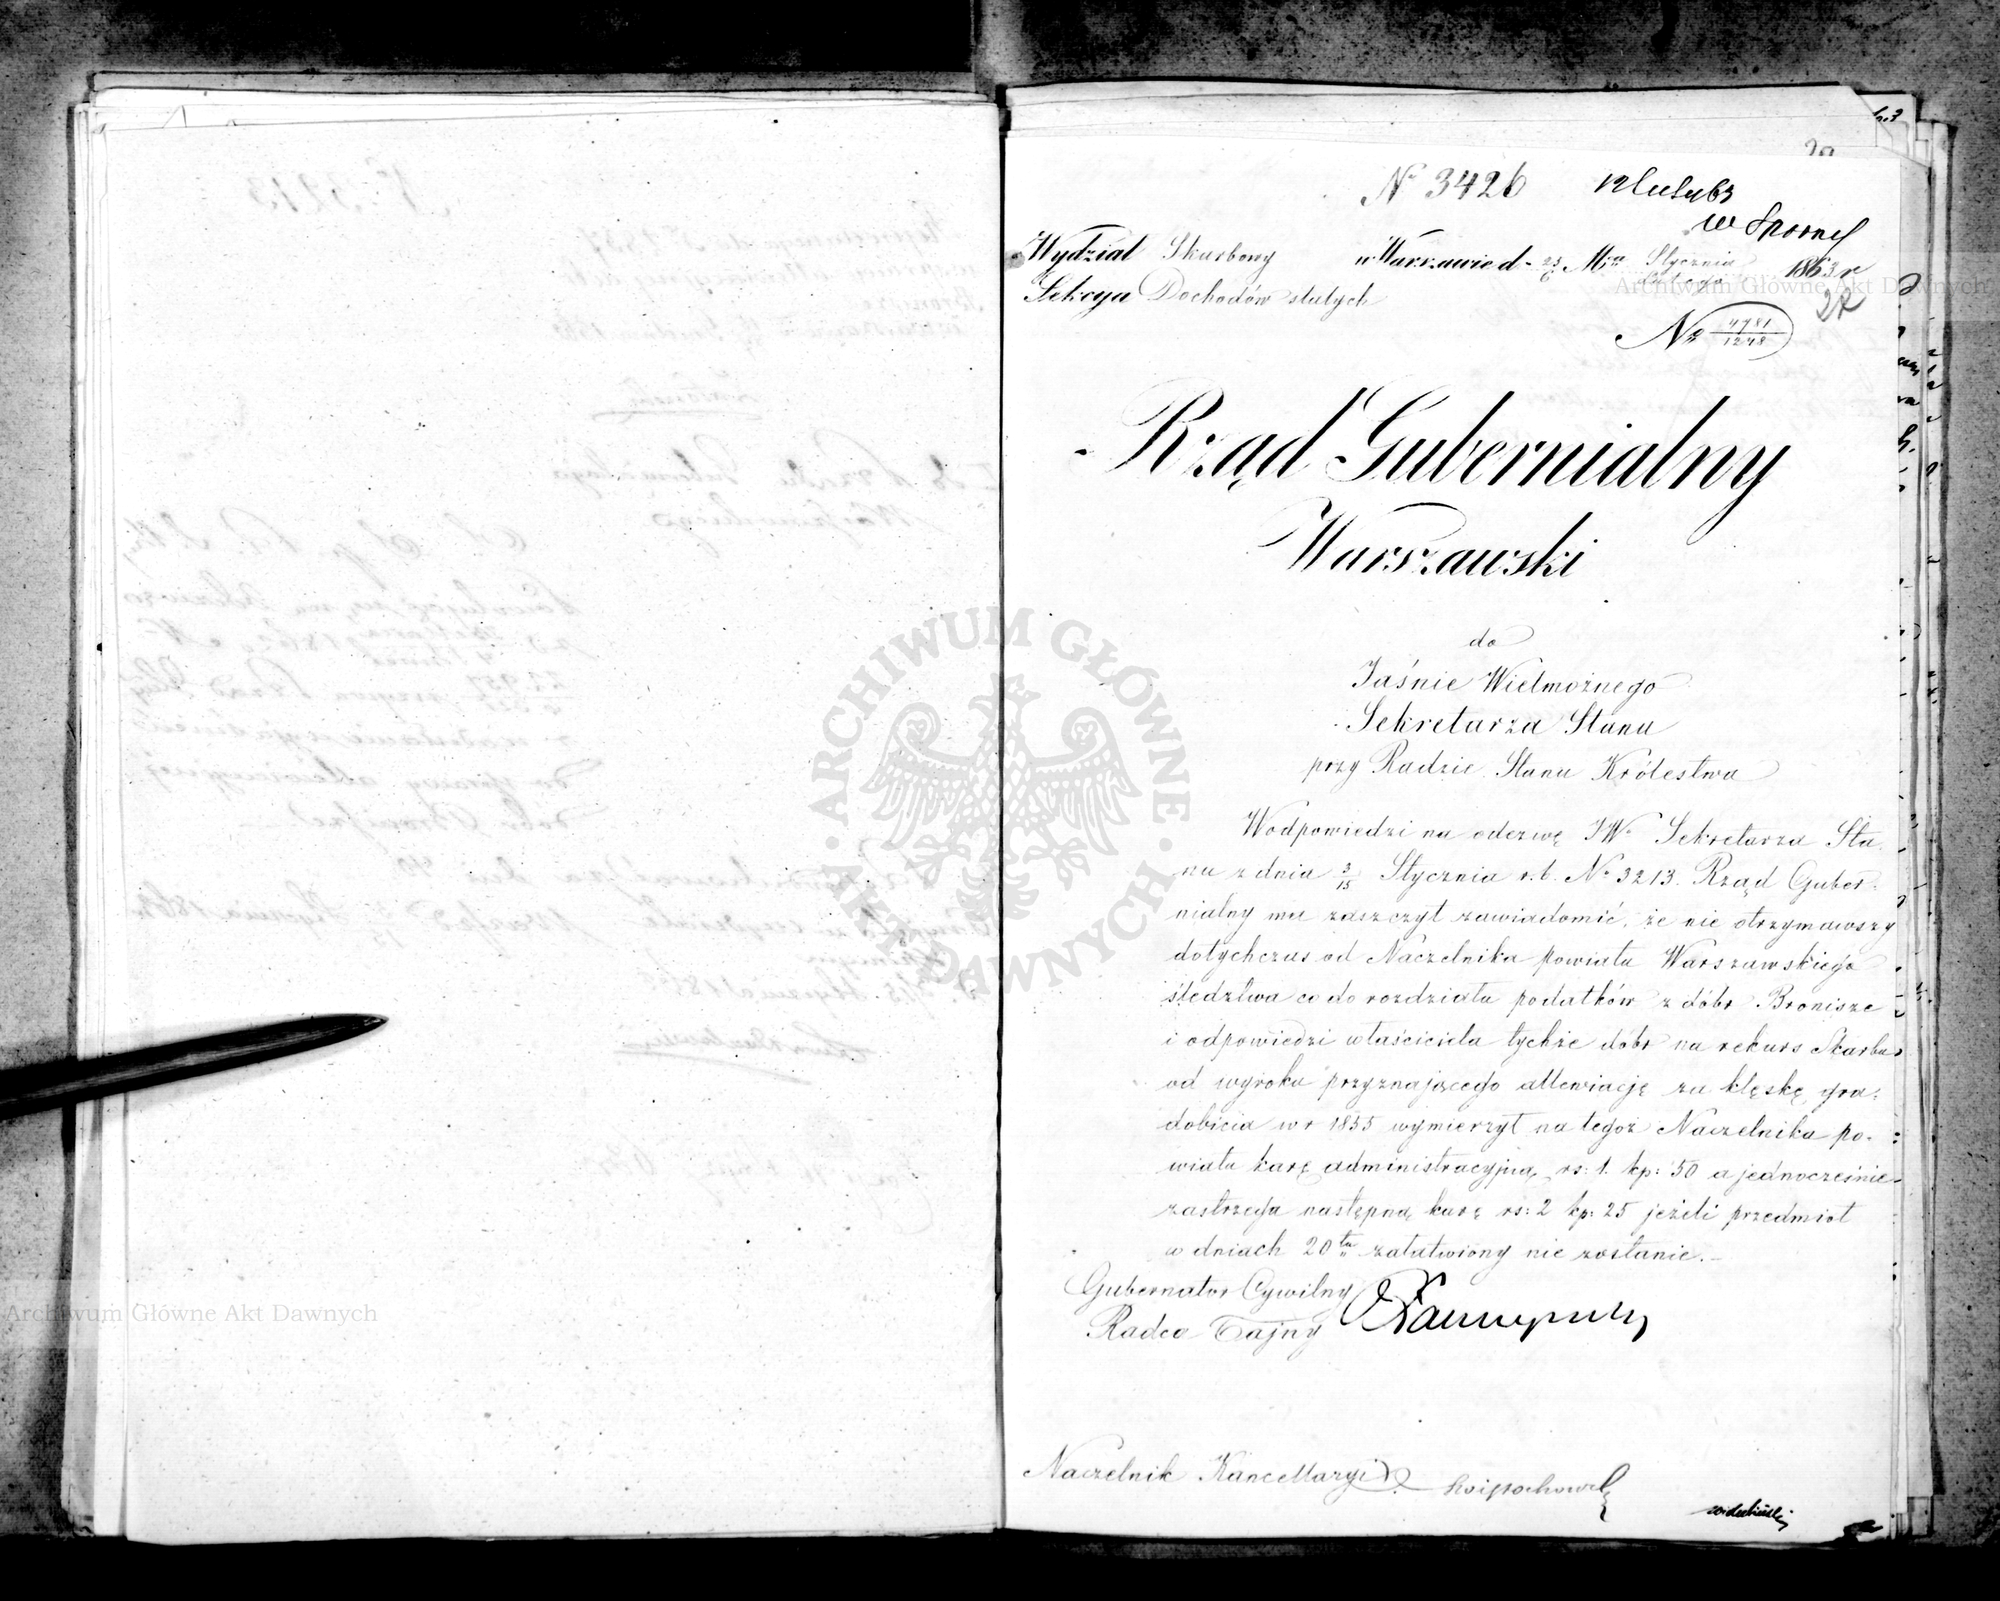 No 3426
12 Lutego 63
w Spornej
Wydział Skarbowy w Warszawie d. 25/6 Mca Stycznia/Lutego 1863 r
Sekcya Dochodów stałych
28
No 4781/1248
Rząd Gubernialny
Warszawski
do
Jaśnie Wielmożnego
Sekretarza Stanu
przy Radzie Stanu Królestwa
W odpowiedzi na odezwę JWo Sekretarza Sta-
nu z dnia 3/15 Stycznia r. b. No 3213. Rząd Guber-
nialny ma zaszczyt zawiadomić, że nie otrzymawszy
dotychczas od Naczelnika powiatu Warszawskiego
śledztwa co do rozdziału podatków z dóbr Bronisze
i odpowiedzi właściciela tychże dóbr na rekurs Skarbu
od wyroku przyznającego allewiację za klęskę gra-
dobicia w r 1855 wymierzył na tegoż Naczelnika po-
wiatu karę administracyjną rs: 1. kp: 50 a jednocześnie
zastrzega następną karę rs: 2 kp: 25 jeżeli przedmiot
w dniach 20tu załatwiony nie zostanie.
Gubernator Cywilny
Radca Tajny
Naczelnik Kancellaryi
ARCHIWUM GŁÓWNE AKT DAWNYCH
Archiwum Główne Akt Dawnych
Archiwum Główne Akt Dawnych